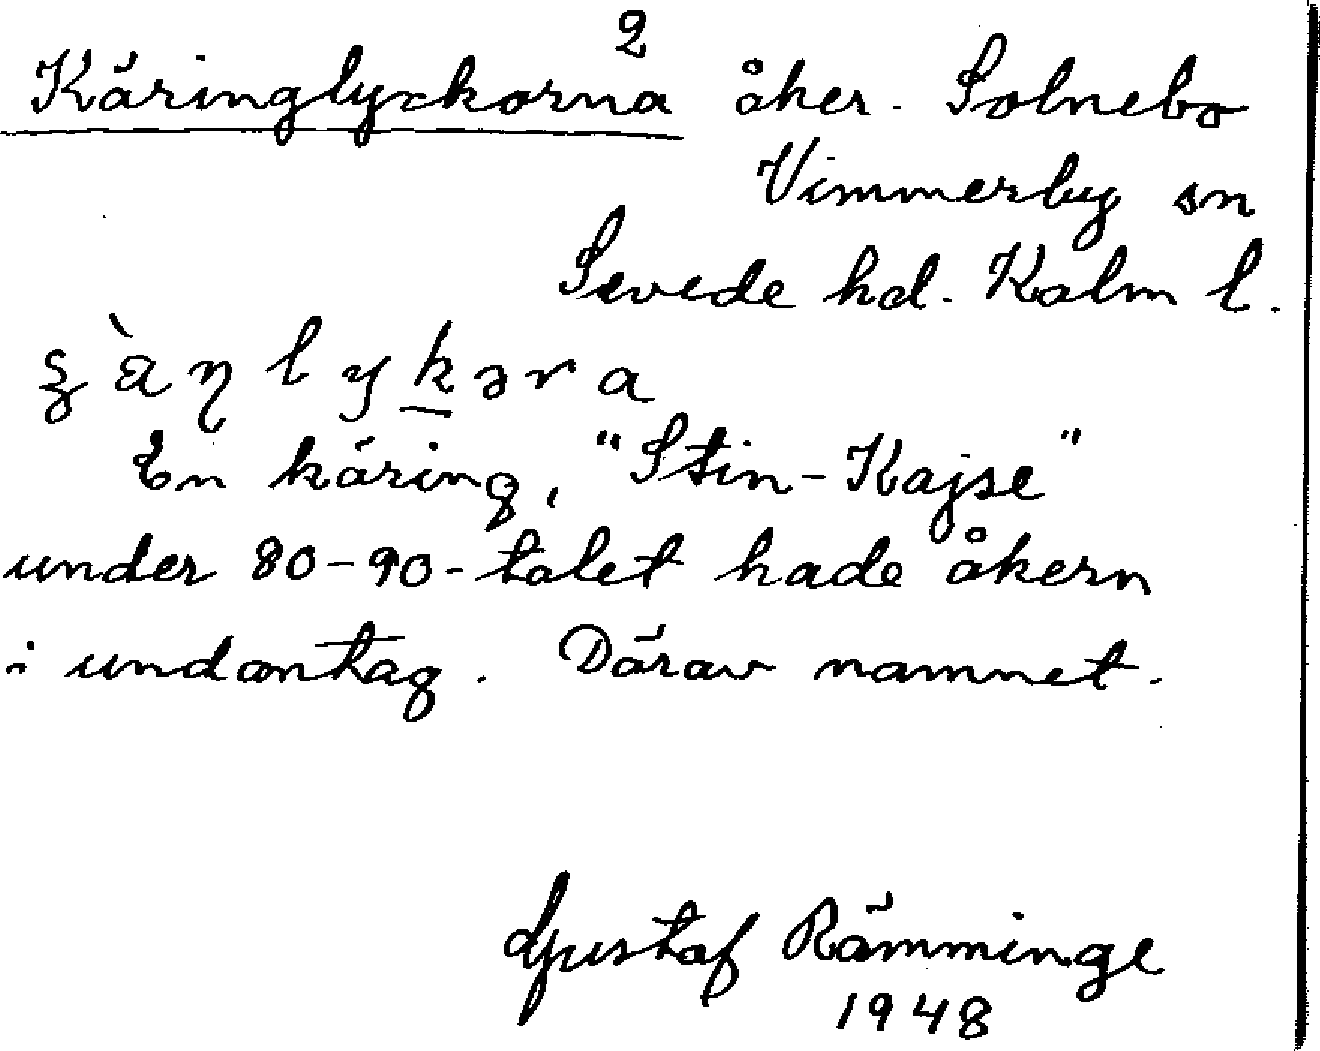 2
Käringlyckorna åker. Solnebo
Vimmerby sn
Sevede hd. Kalm l.
ʂàŋlykəra
En käring, "Stin-Kajse"
under 80-90-talet hade åkern
i undantag. Därav namnet.
Gustaf Rämminge
1948